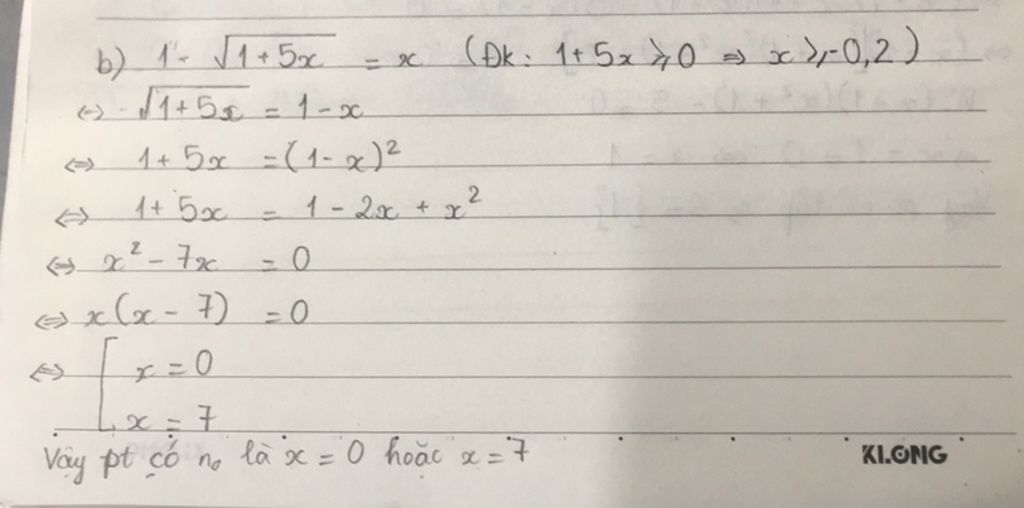 b) 1 - √(1+5x) = x (Đk: 1+5x ⩾ 0 ⇒ x ⩾ -0,2)
⇔ √(1+5x) = 1-x
⇔ 1+5x = (1-x)²
⇔ 1+5x = 1-2x+x²
⇔ x²-7x = 0
⇔ x(x-7) = 0
⇔ [ x = 0
x = 7
Vậy pt có no là x = 0 hoặc x = 7
KLONG